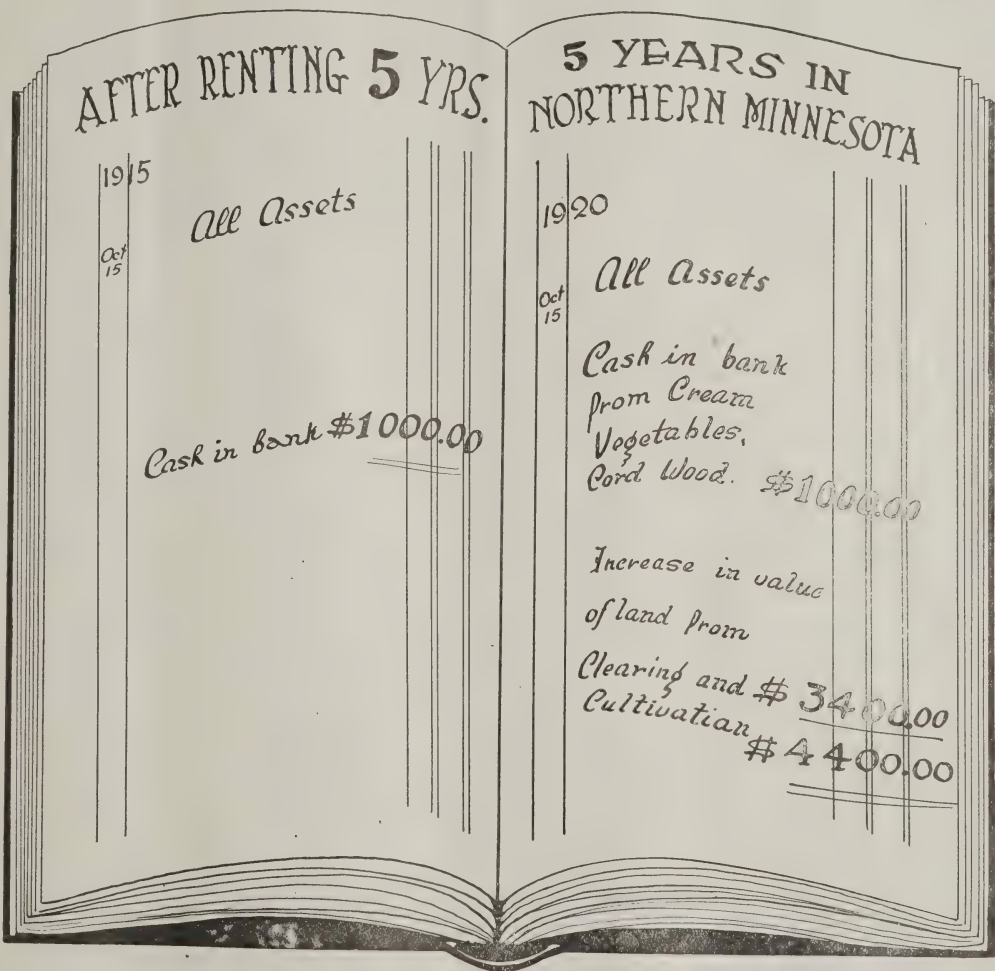 AFTER RENTING 5 YRS.
1915
Oct
15
All Assets
Cash in bank $1000.00
5 YEARS IN
NORTHERN MINNESOTA
1920
Oct
15
All Assets
Cash in bank
from Cream
Vegetables,
Cord Wood. $1000.00
Increase in value
of land from
Clearing and $3400.00
Cultivation
$4400.00